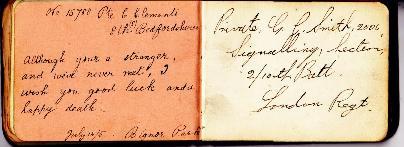 No 15750 Pte C Clements
8th Bedfordshires
Although your a stranger,
and we've never met, I
wish you good luck and a
happy death.
July 12/15. Bignor Park
Private, G. G. Smith, 2006,
Signalling, Section,
2/10th Batt.
London Regt.